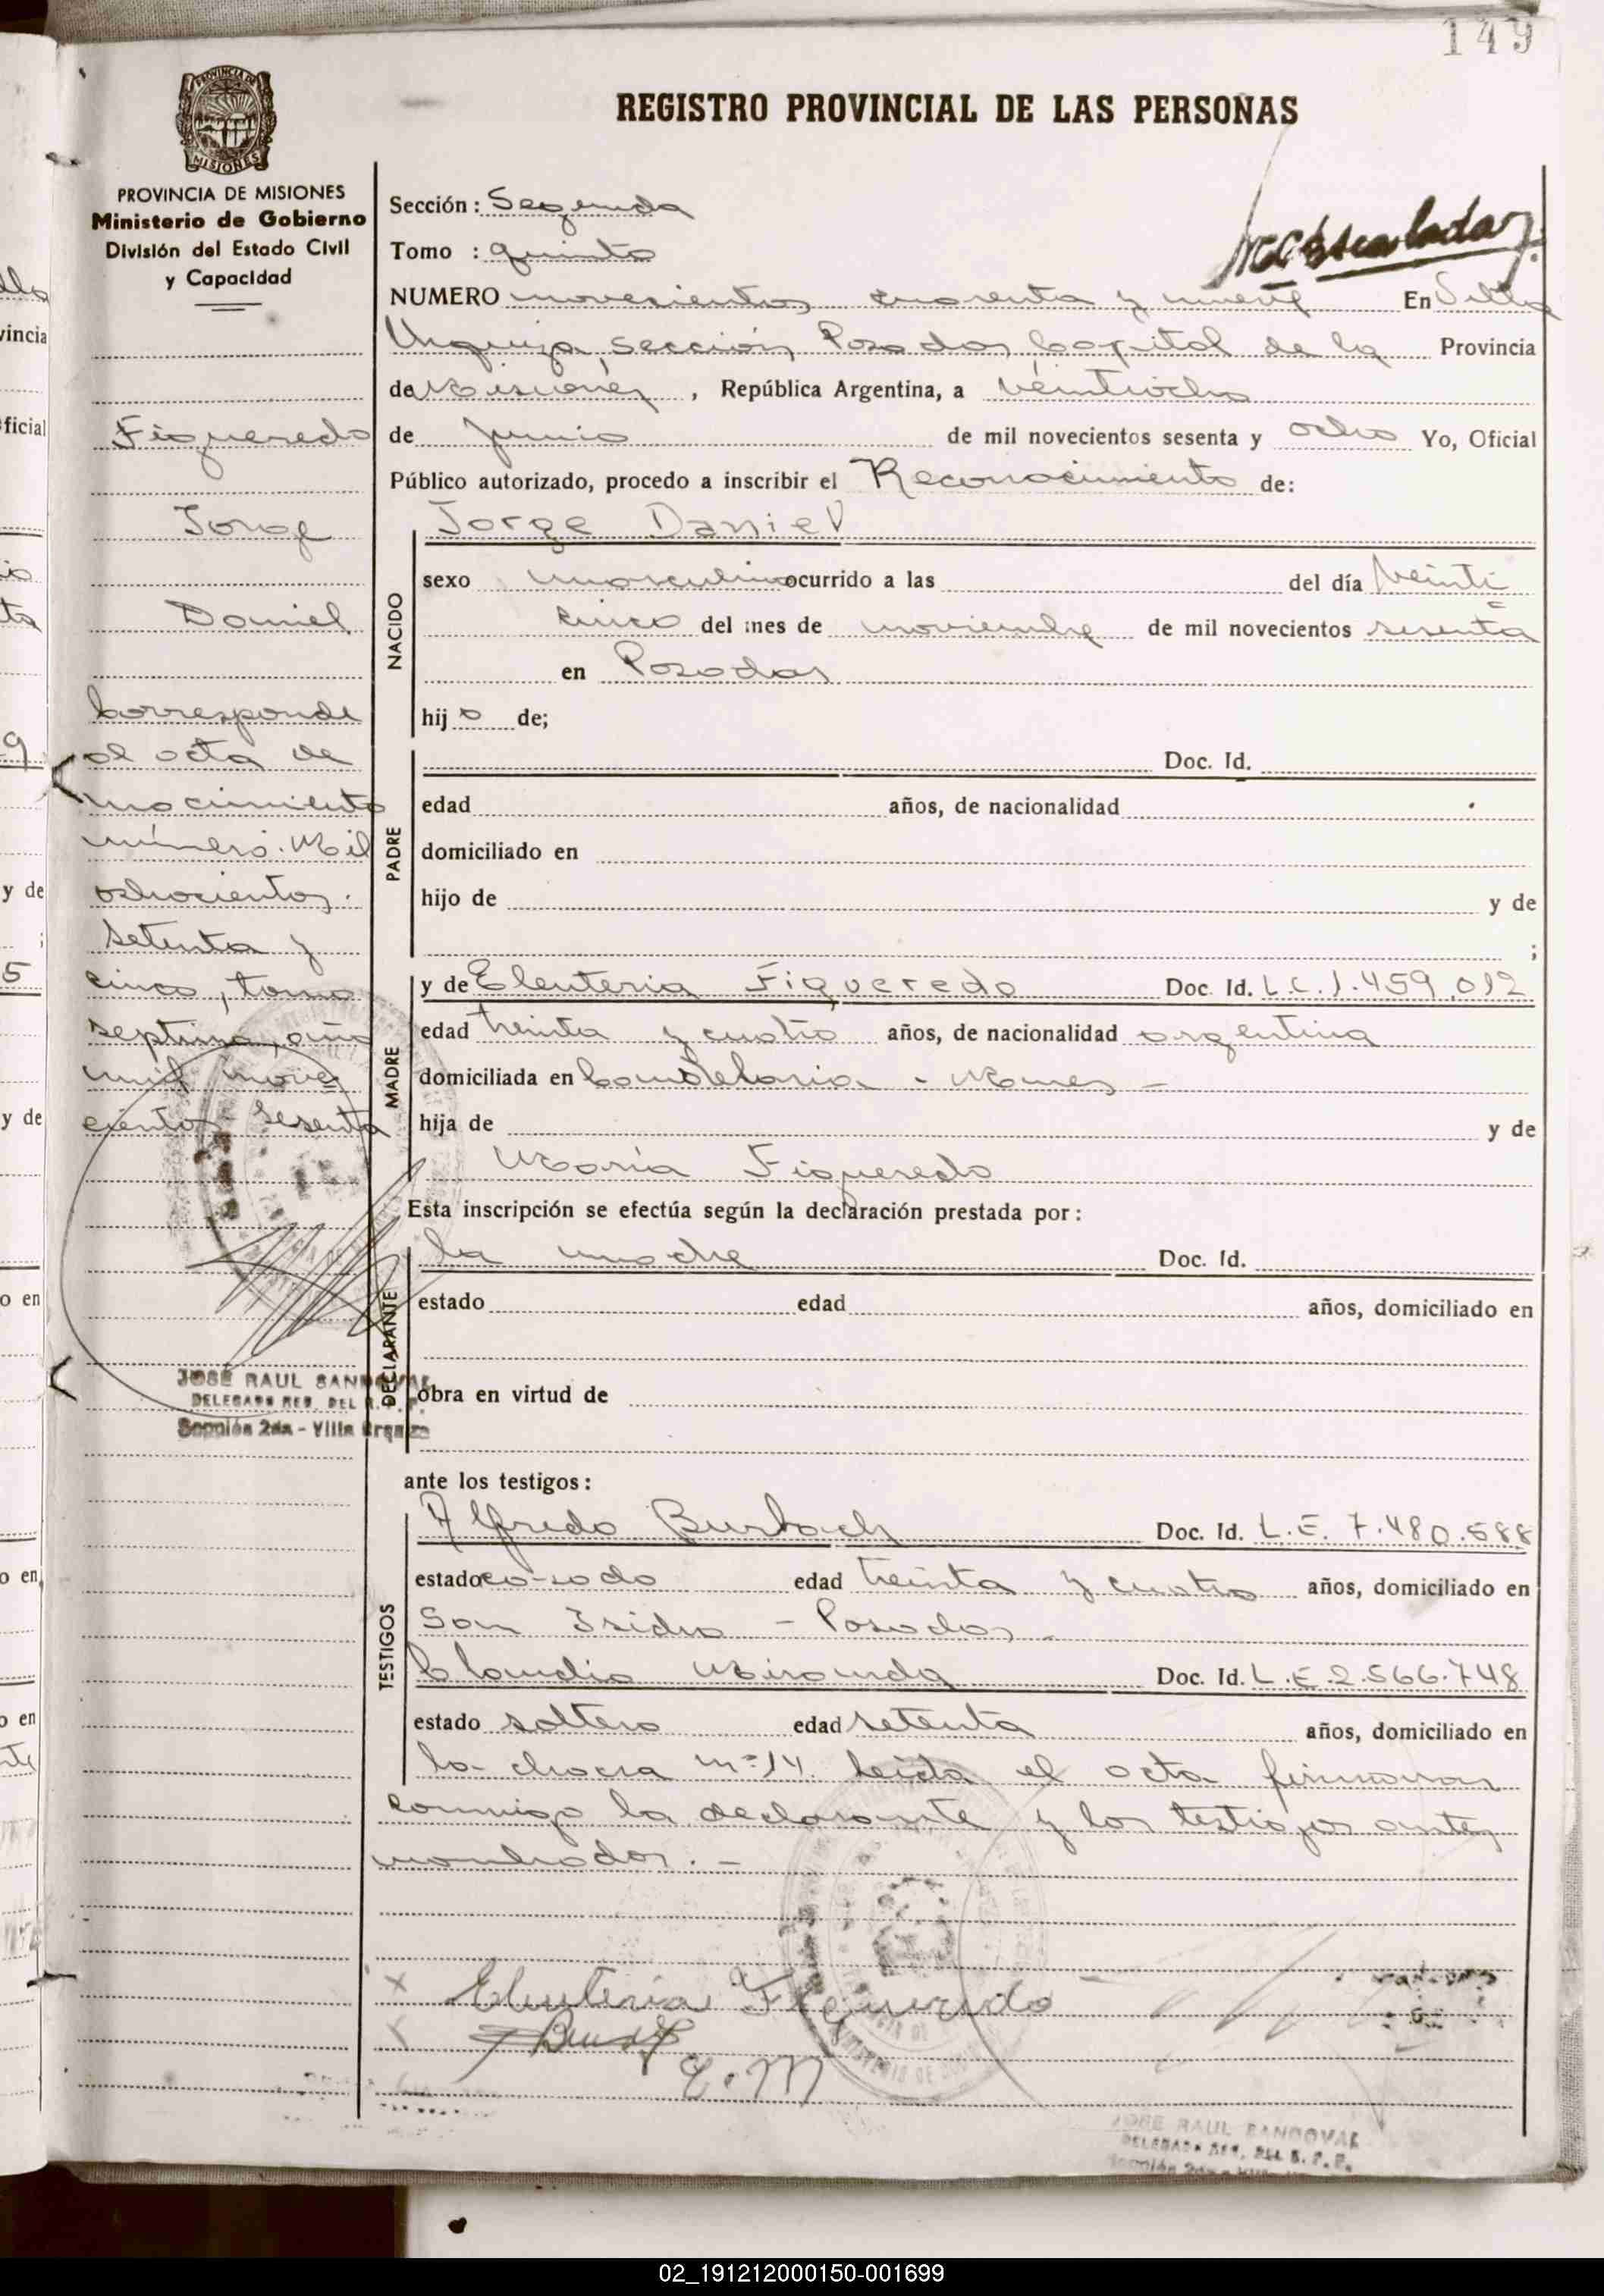 149
REGISTRO PROVINCIAL DE LAS PERSONAS
PROVINCIA DE MISIONES
Ministerio de Gobierno
División del Estado Civil
y Capacidad
Figueredo
Jorge
Daniel
Corresponde
al acta de
nacimiento
número Mil
ochocientos
setenta y
cinco, tomo
septimo, año
mil nove
cientos sesenta
JOSÉ RAUL SANDOVAL
DELEGADO REG. DEL R. P. P.
Sección 2da - Villa Urquiza
Sección: Segunda
Tomo : quinto
NUMERO novecientos cuarenta y nueve En Villa
Urquiza, sección, Posadas Capital de la Provincia
de Misiones, República Argentina, a veintiocho
de Junio de mil novecientos sesenta y ocho Yo, Oficial
Público autorizado, procedo a inscribir el Reconocimiento de:
NACIDO
Jorge Daniel
sexo masculino ocurrido a las del día Veinti
cinco del mes de noviembre de mil novecientos sesenta
en Posadas
hijo de;
PADRE
Doc. Id.
edad años, de nacionalidad
domiciliado en
hijo de y de
;
MADRE
y de Eleuteria Figueredo Doc. Id. L.C. 1.459.012
edad treinta y cuatro años, de nacionalidad argentina
domiciliada en Candelaria - Mnes -
hija de y de
María Figueredo
Esta inscripción se efectúa según la declaración prestada por:
DECLARANTE
la madre Doc. Id.
estado edad años, domiciliado en
obra en virtud de
ante los testigos:
TESTIGOS
Alfredo Burbach Doc. Id. L.E. 7.480.588
estado casado edad treinta y cuatro años, domiciliado en
San Isidro - Posadas -
Claudio Miranda Doc. Id. L.E. 2.566.748
estado soltero edad setenta años, domiciliado en
la chacra nº 14. leída el acta firmaron
conmigo la declarante y los testigos antes
nombrados. -
x Eleuteria Figueredo
E. M
JOSE RAUL SANDOVAL
DELEGADO REG. DEL R. P. P.
02_191212000150-001699